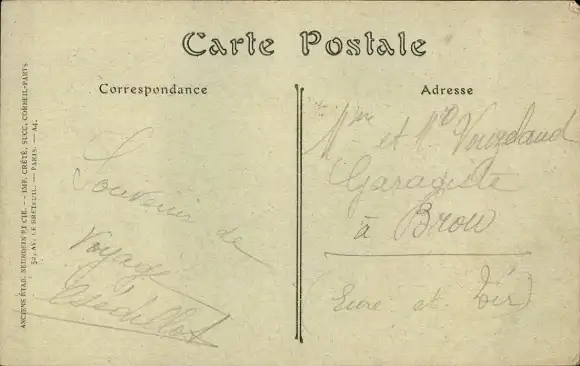 Carte Postale
Correspondance
Adresse
Souvenir de
voyage
Mme et Mr
Garagiste
à Brou
(Eure et Loir)
ANCIENS ÉTAB. NEURDEIN ET CIE. — IMP. CRÉTÉ, SUCC. CORBEIL-PARIS
52, AV. DE BRETEUIL. — PARIS. — A4.